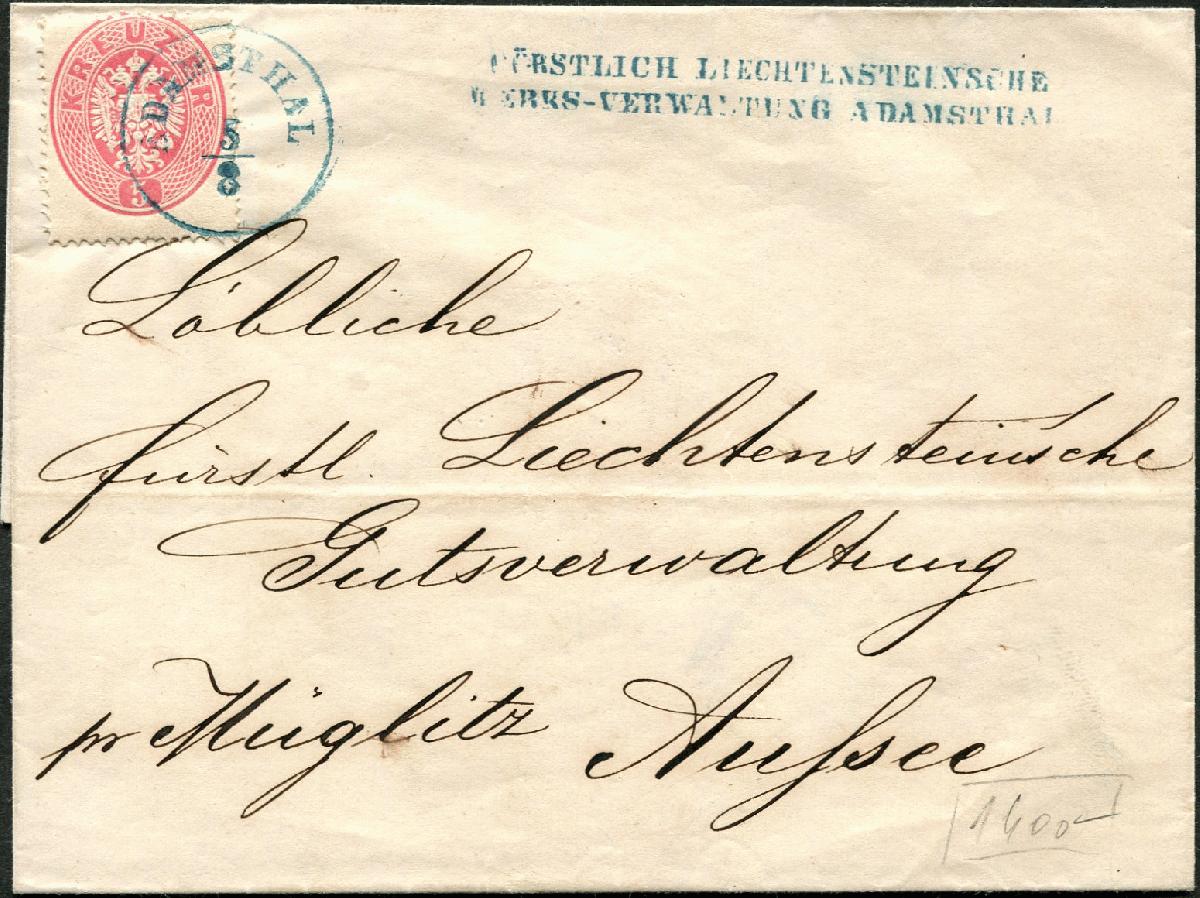 KREUZER
5
ADAMSTHAL
5
8
FÜRSTLICH LIECHTENSTEINSCHE
WERKS-VERWALTUNG ADAMSTHAL
Löbliche
fürstl. Liechtensteinsche
Gutsverwaltung
pr Müglitz Aufsee
1400-